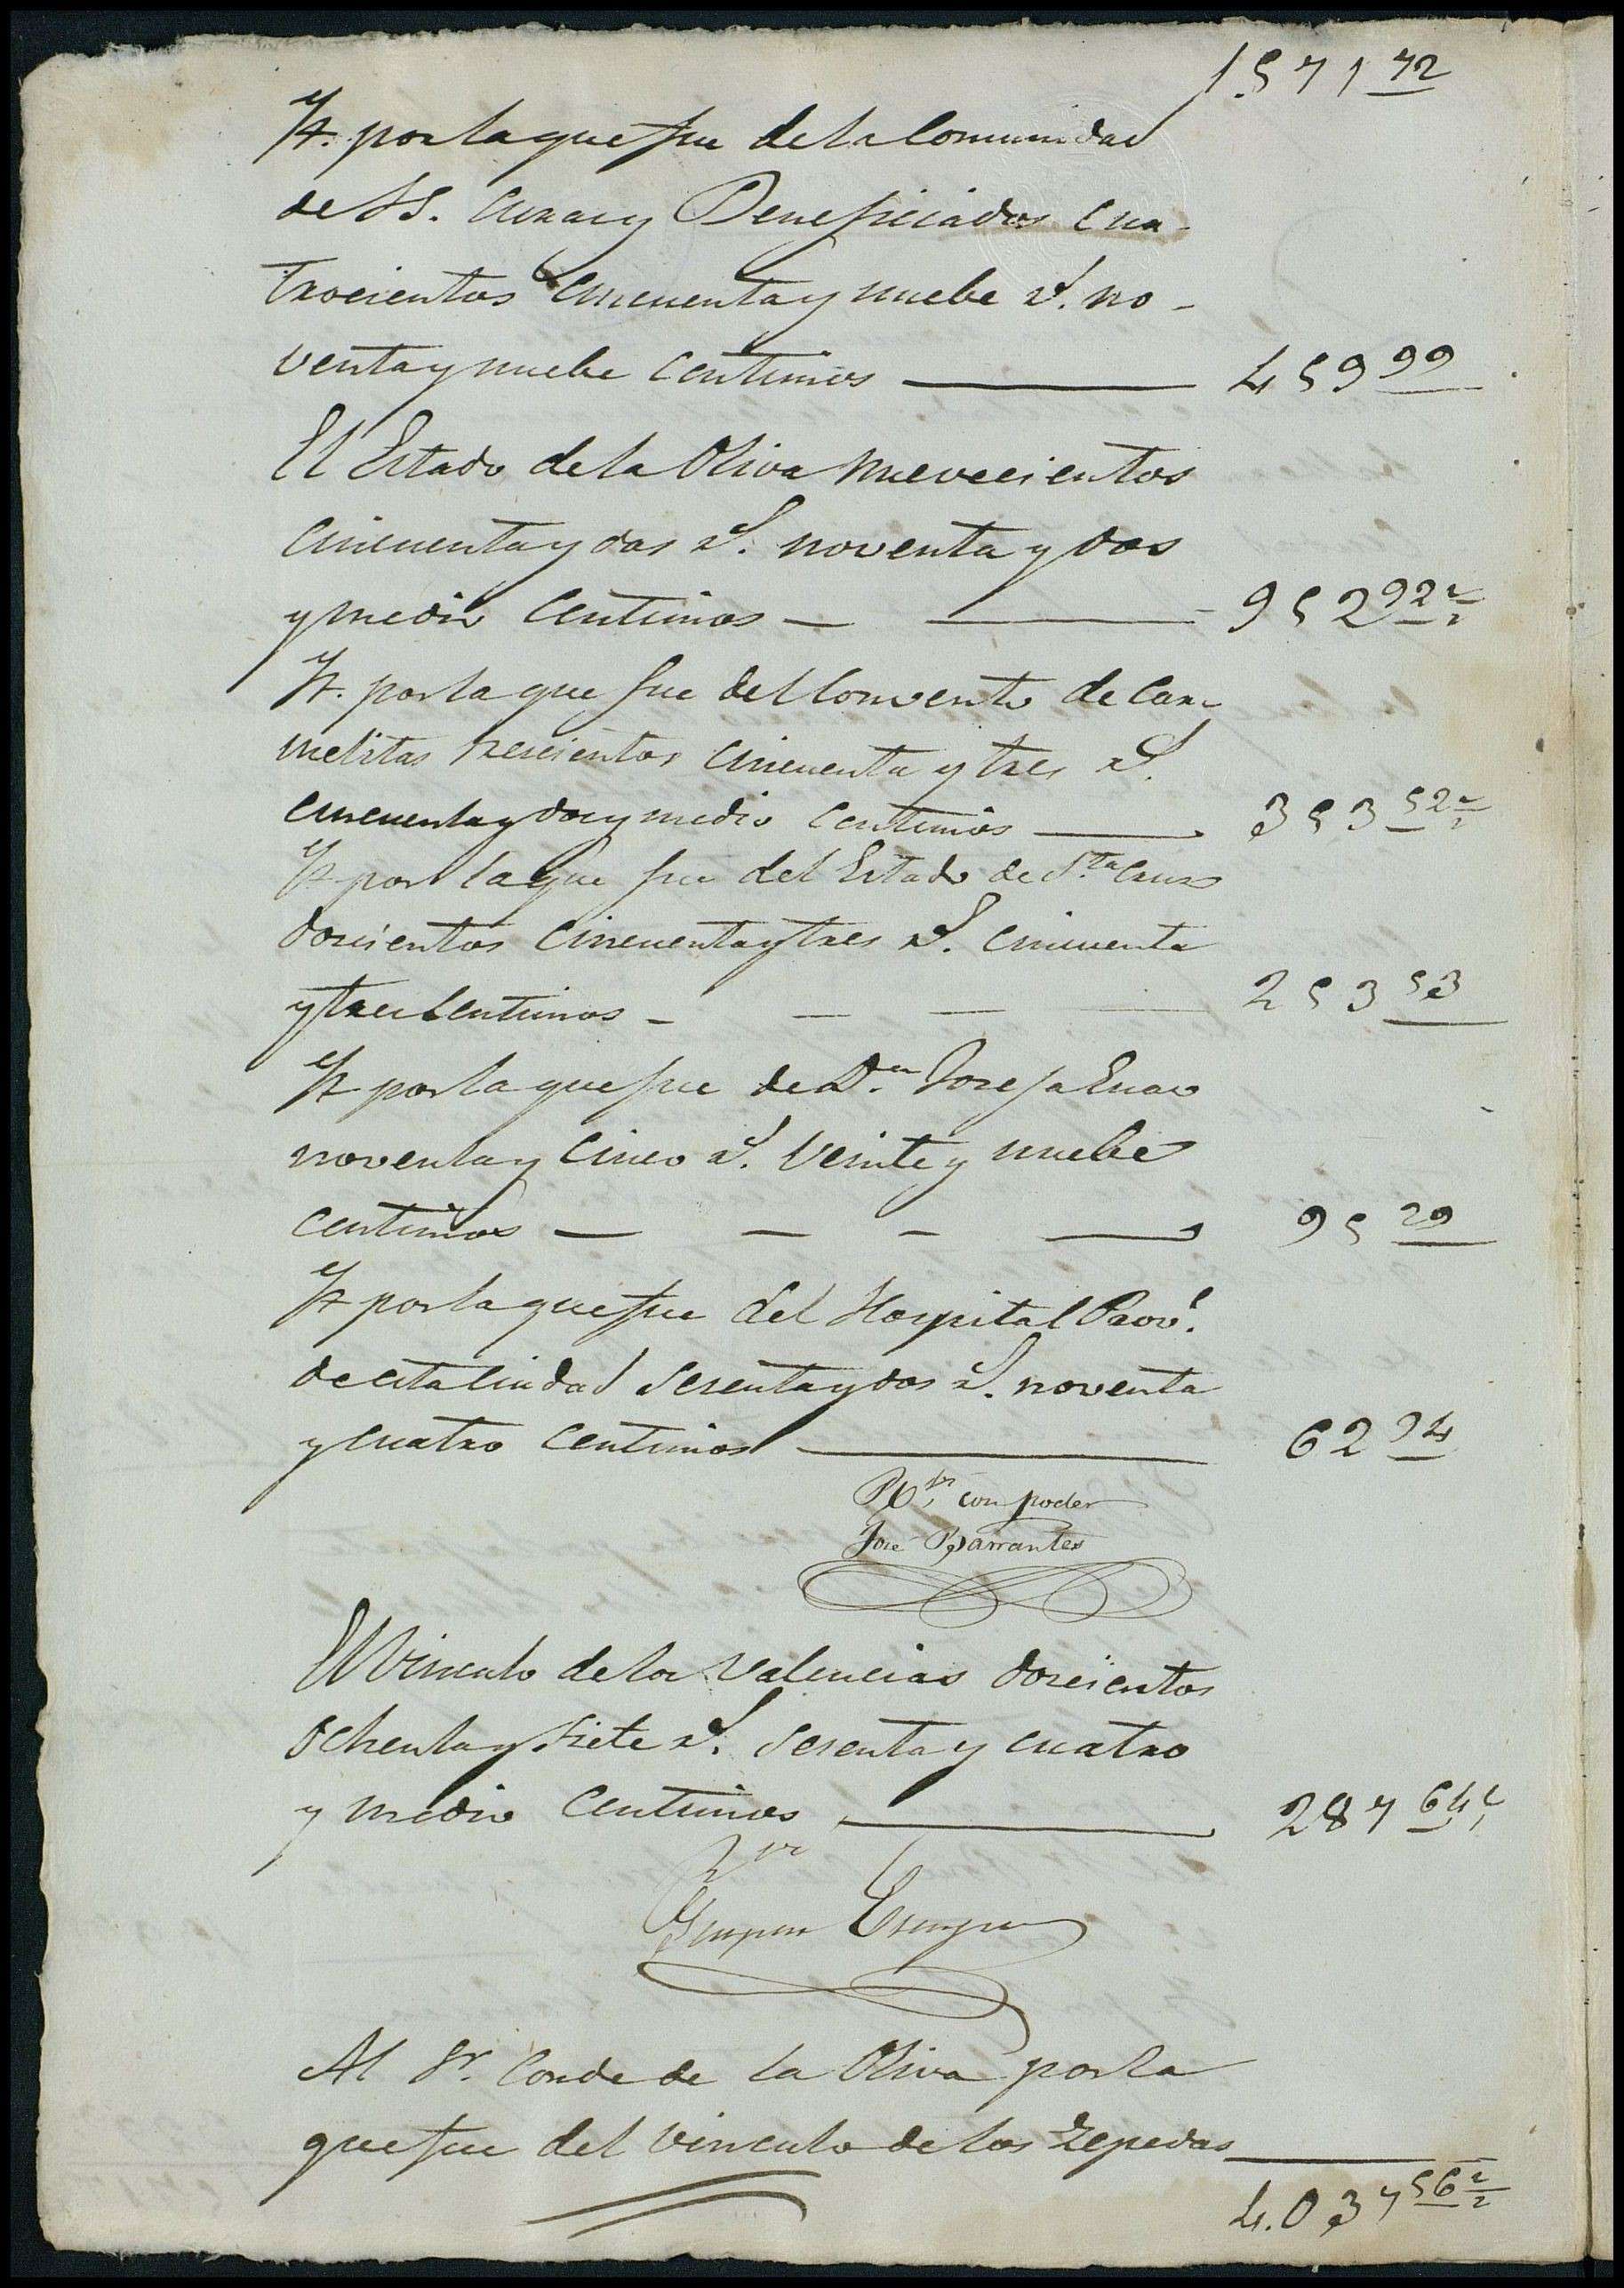 1.571 72
Yt. por la que fue de la Comunidad
de SS. Curas y Beneficiados cua-
trocientos cincuenta y nuebe r.s no-
venta y nuebe centimos — 459 99
El Estado de la Oliva nuevecientos
cincuenta y dos r.s noventa y dos
y medio centimos — 952 92 1/2
Yt. por la que fue del Convento de Car-
melitas trescientos cincuenta y tres r.s
cincuenta y dos y medio centimos — 353 52 1/2
Yt por la que fue del Estado de S.ta Cruz
doscientos cincuenta y tres r.s cincuenta
y tres centimos — 253 53
Yt por la que fue de D.ña Josefa
noventa y cinco r.s veinte y nuebe
centimos — 95 29
Yt por la que fue del Hospital Prov.l
de esta ciudad sesenta y dos r.s noventa
y cuatro centimos — 62 94
con poder
José Barrantes
El Vinculo de los Valencias doscientos
ochenta y siete r.s sesenta y cuatro
y medio centimos — 287 64 1/2
Al Sr. Conde de la Oliva por la
que fue del vinculo de los Zepedas
4.037 56 1/2